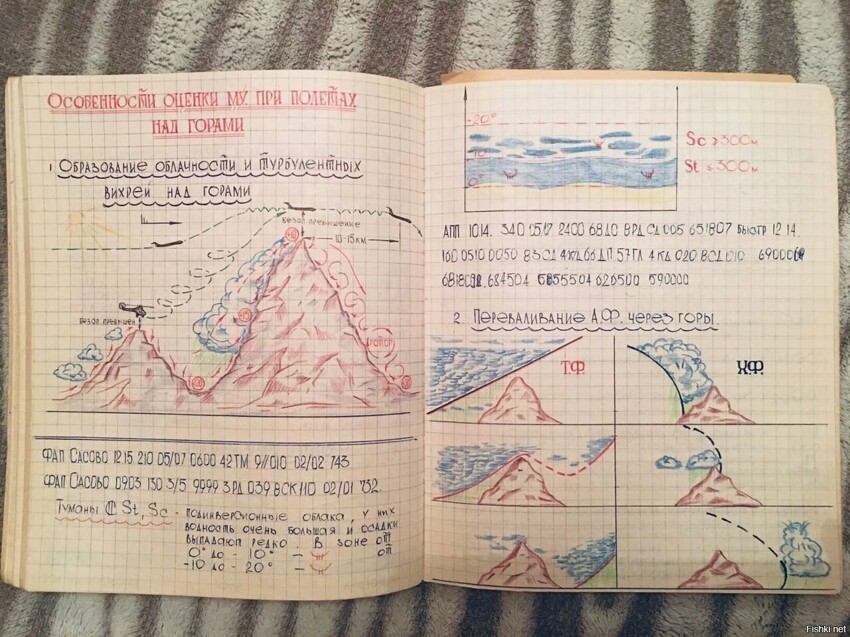 ОСОБЕННОСТИ ОЦЕНКИ МУ ПРИ ПОЛЕТАХ
НАД ГОРАМИ
1 ОБРАЗОВАНИЕ ОБЛАЧНОСТИ И ТУРБУЛЕНТНЫХ
ВИХРЕЙ НАД ГОРАМИ
БЕЗОП. ПРЕВЫШЕНИЕ
10-15 КМ
БЕЗОП. ПРЕВЫШЕН
РОТОР
ФАП САСОВО 1215 210 05/07 0600 42ТМ 9//010 02/02 743
ФАП САСОВО 0903 130 3/5 9999 3РД 039 ВСК 110 02/01 732
ТУМАНЫ St, Sc - ПОДИНВЕРСИОННЫЕ ОБЛАКА, У НИХ
ВОДНОСТЬ ОЧЕНЬ БОЛЬШАЯ И ОСАДКИ
ВЫПАДАЮТ РЕДКО. В ЗОНЕ ОТ
0° ДО -10° - ОТ
-10 ДО -20° -
-20°
10
0°
Sc > 300м
St ≤ 300м
АПП 1014. 340 0507 2400 6810 8РД СД 005 651807 БЫСТР 12 14
160 0510 0050 ДП 57ГЛ 4КД 020 ВСД 010
684504 6855504 620500 590000
2. ПЕРЕВАЛИВАНИЕ А.Ф. ЧЕРЕЗ ГОРЫ.
Т.Ф. Х.Ф.
Fishki.net